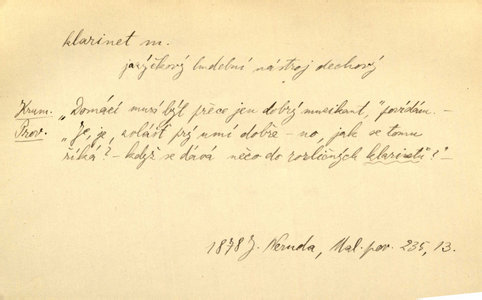 klarinet m.
jazýčkový hudební nástroj dechový
Krum. „Domácí musí být přece jen dobrý muzikant," povídám. –
Prov. „Je, je, zvlášť prý umí dobře – no, jak se tomu
říká? – když se dává něco do rozličných klarinetů"? –
1878 J. Neruda, Mal. pov. 235, 13.